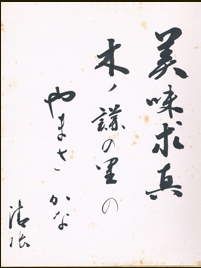 美味求真
木ノ謡の里の
やまさ かな
清張